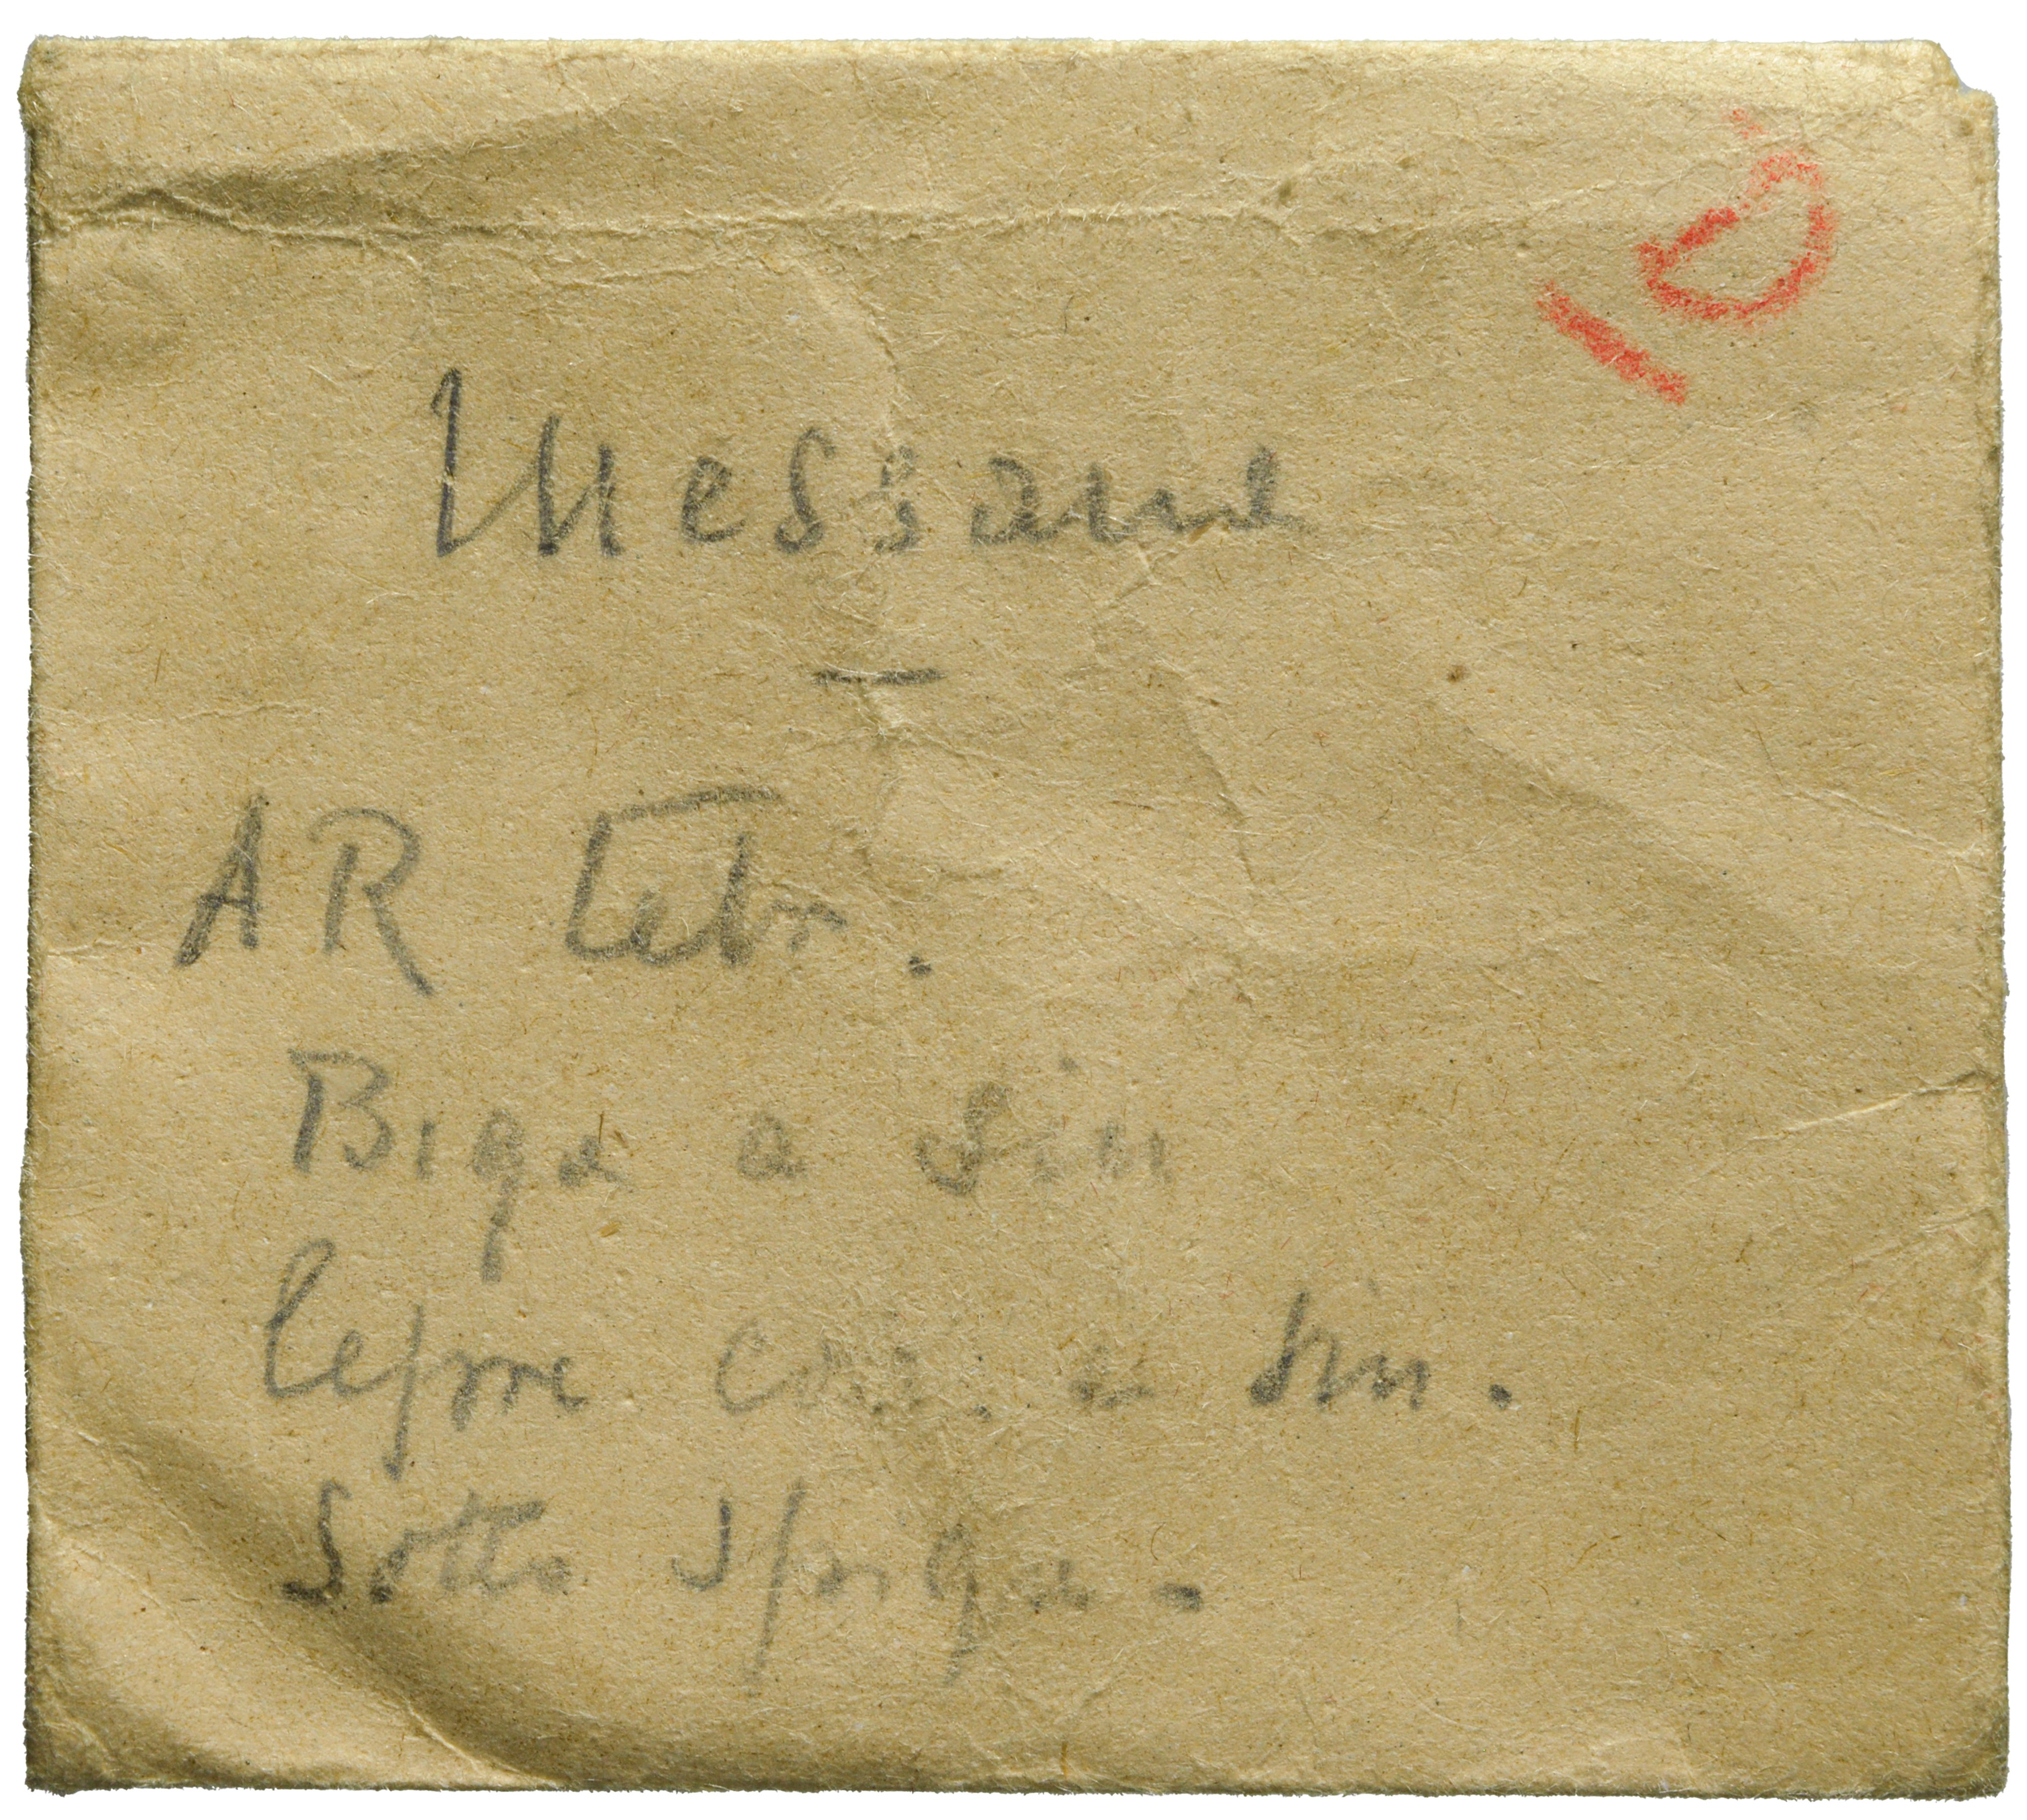 10
Messana
—
AR Tetr.
Biga a sin
lepre cor. a sin.
Sotto spiga.